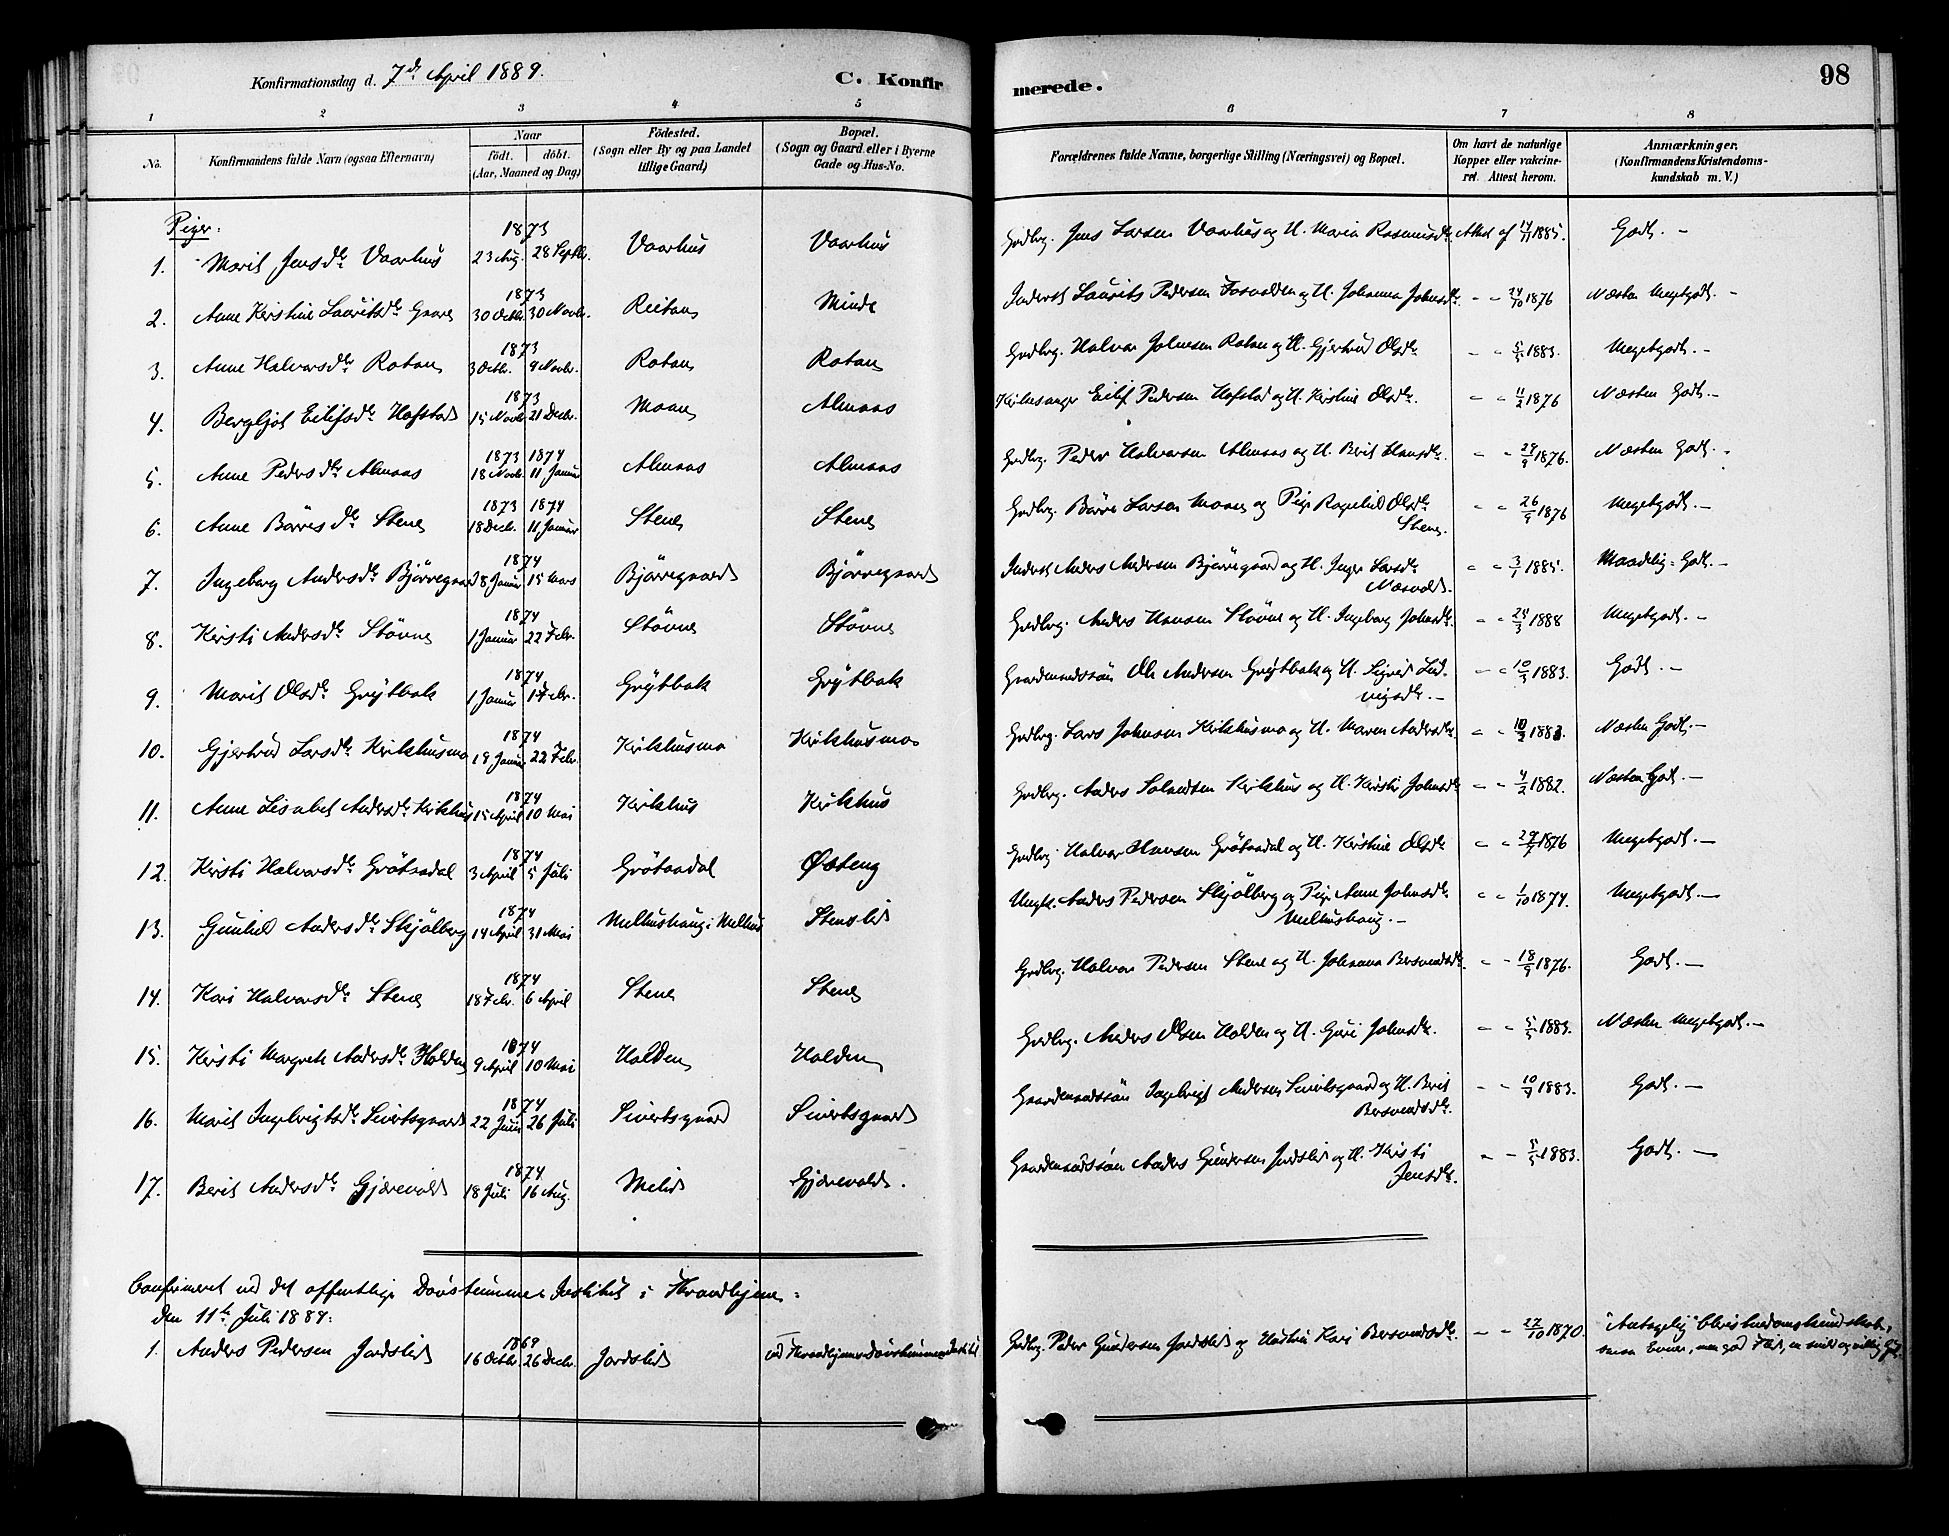 98
Konfirmationsdag d. 7de April 1889.
C. Konfirmerede.
1 2 3 4 5 6 7 8
No.
Konfirmandens fulde Navn (ogsaa Efternavn)
Naar
født. døbt.
(Aar, Maaned og Dag)
Födested.
(Sogn eller By og paa Landet
tillige Gaard)
Bopæl.
(Sogn og Gaard eller i Byerne
Gade og Hus-No.
Forældrenes fulde Navne, borgerlige Stilling (Næringsvei) og Bopæl.
Om havt de naturlige
Kopper eller vakcine-
ret. Attest herom.
Anmærkninger.
(Konfirmandens Kristendoms-
kundskab m. V.)
Piger:
1. Marit Jensdr Vaarhus 1873 23 Aug. 28 Septbr. Vaarhus Vaarhus Grdbrg. Jens Larsen Vaarhus og H. Maria Rasmusdr. Attest af 14/11 1885. Godt. -
2. Anne Kirstine Lauritsdr 1873 30 Octbr. 30 Novbr. Reitan Minde Inderst Laurits Pedersen og H. Johanna Johnsdr. - - 24/10 1876 Næsten Megetgodt. -
3. Anne Halvorsdr Rotan 1873 3 Octbr. 9 Novbr. Rotan Rotan Grdbrg. Halvor Johnsen Rotan og H. Gjertrud Olsdr. - - 5/5 1883. Megetgodt. -
4. Bergljot Eilifsdr Hofstad 1873 15 Novbr. 21 Decbr. Moan Almaas Kirkesanger Eilif Pedersen Hofstad og H. Kirstine Olsdr. - - 11/2 1876 Næsten Godt. -
5. Anne Pedersdr Almaas 1873 18 Novbr. 1874 11 Januar Almaas Almaas Grdbrg. Peder Halvorsen Almaas og H. Berit Hansdr. - - 29/9 1876. Næsten Godt. -
6. Anne Börresdr Stene 1873 18 Decbr. 1874 11 Januar Stene Stene Grdbrg. Börre Larsen Moan og Pige Ragnhild Olsdr. - - 26/9 1876 Megetgodt. -
Stene.
7. Ingeborg Andersdr Bjørregaard 1874 8 Januar 15 Mars Bjørregaard Bjørregaard Inderst Anders Andersen Bjørregaard og H. Inger Larsdr - - 3/1 1885. Maadelig-Godt. -
Næsvold.
8. Kirsti Andersdr Støvne 1874 1 Januar 22 Febr. Støvne Støvne Grdbrg. Anders Hansen Støvne og H. Ingeborg Johnsdr. - - 24/3 1888 Megetgodt. -
9. Marit Olsdr Grytbak 1874 1 Januar 1 Febr. Grytbak Grytbak Gaardmandssøn Ole Andersen Grytbak og H. Sigrid Lud- - - 10/5 1883. Godt. -
vigsdr. -
10. Gjertrud Larsdr Kirkhusmo 1874 18 Januar 22 Febr. Kirkhusmo Kirkhusmo Grdbrg. Lars Johnsen Kirkhusmo og H. Maren Andersdr - - 10/2 1883. Næsten Godt. -
11. Anne Lisabet Andersdr Kirkhus 1874 15 April 10 Mai Kirkhus Kirkhus Grdbrg. Anders Kirkhus og H. Kirsti Johnsdr - - 4/2 1882. Næsten Godt. -
12. Kirsti Halvorsdr Grøtaadal 1874 3 April 5 Juli Grøtaadal Østeng Grdbrg. Halvor Hansen Grøtaadal og H. Kirstine Olsdr - - 1876 Megetgodt. -
13. Gunhild Andersdr Skjølberg 1874 14 April 31 Mai Melhushaug i Melhus Stenslid Ungk. Anders Pedersen Skjølberg og Pige Anne Johnsdr - - 1/10 1874. Megetgodt. -
Melhushaug. -
14. Kari Halvorsdr Stene 1874 18 Febr. 6 April Stene Stene Grdbrg. Halvor Pedersen Stene og H. Johanna Bersvendsdr. - - 18/9 1876. Godt. -
15. Kirsti Margrete Andersdr Holden 1874 9 April 10 Mai Holden Holden Grdbrg. Anders Olsen Holden og H. Guri Johnsdr. - - 5/5 1883. Næsten Megetgodt. -
16. Marit Ingebrigtsdr Sivertsgaard 1874 22 Juni 26 Juli Sivertsgaard Sivertsgaard Gaardmandssøn Ingebrigt Andersen Sivertsgaard og H. Berit - - 10/9 1883. Godt. -
Bersvendsdr.
17. Berit Andersdr Gjærevold 1874 18 Juli 16 Aug. Melid Gjærevold. Gaardmandssøn Anders Gundersen Jordslid og H. Kirsti - - 5/5 1883. Godt. -
Jensdr.
Confirmeret ved det offentlige Døvstumme Institut i Throndhjem:
den 11te Juli 1889:
1. Anders Pedersen Jordslid 1869 16 Octbr. 26 Decbr. Jordslid ved Throndhjems Døvstumme Institut Grdbrg. Peder Gundersen Jordslid og Hustru Kari Bersvendsdr. - - 27/10 1870. "Antagelig" Christendomskundskab,
smaa Evner, men god Flid, en snild og villig